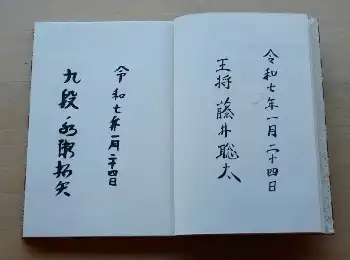 令和七年一月二十四日
王将 藤井聡太
令和七年一月二十四日
九段 永瀬拓矢